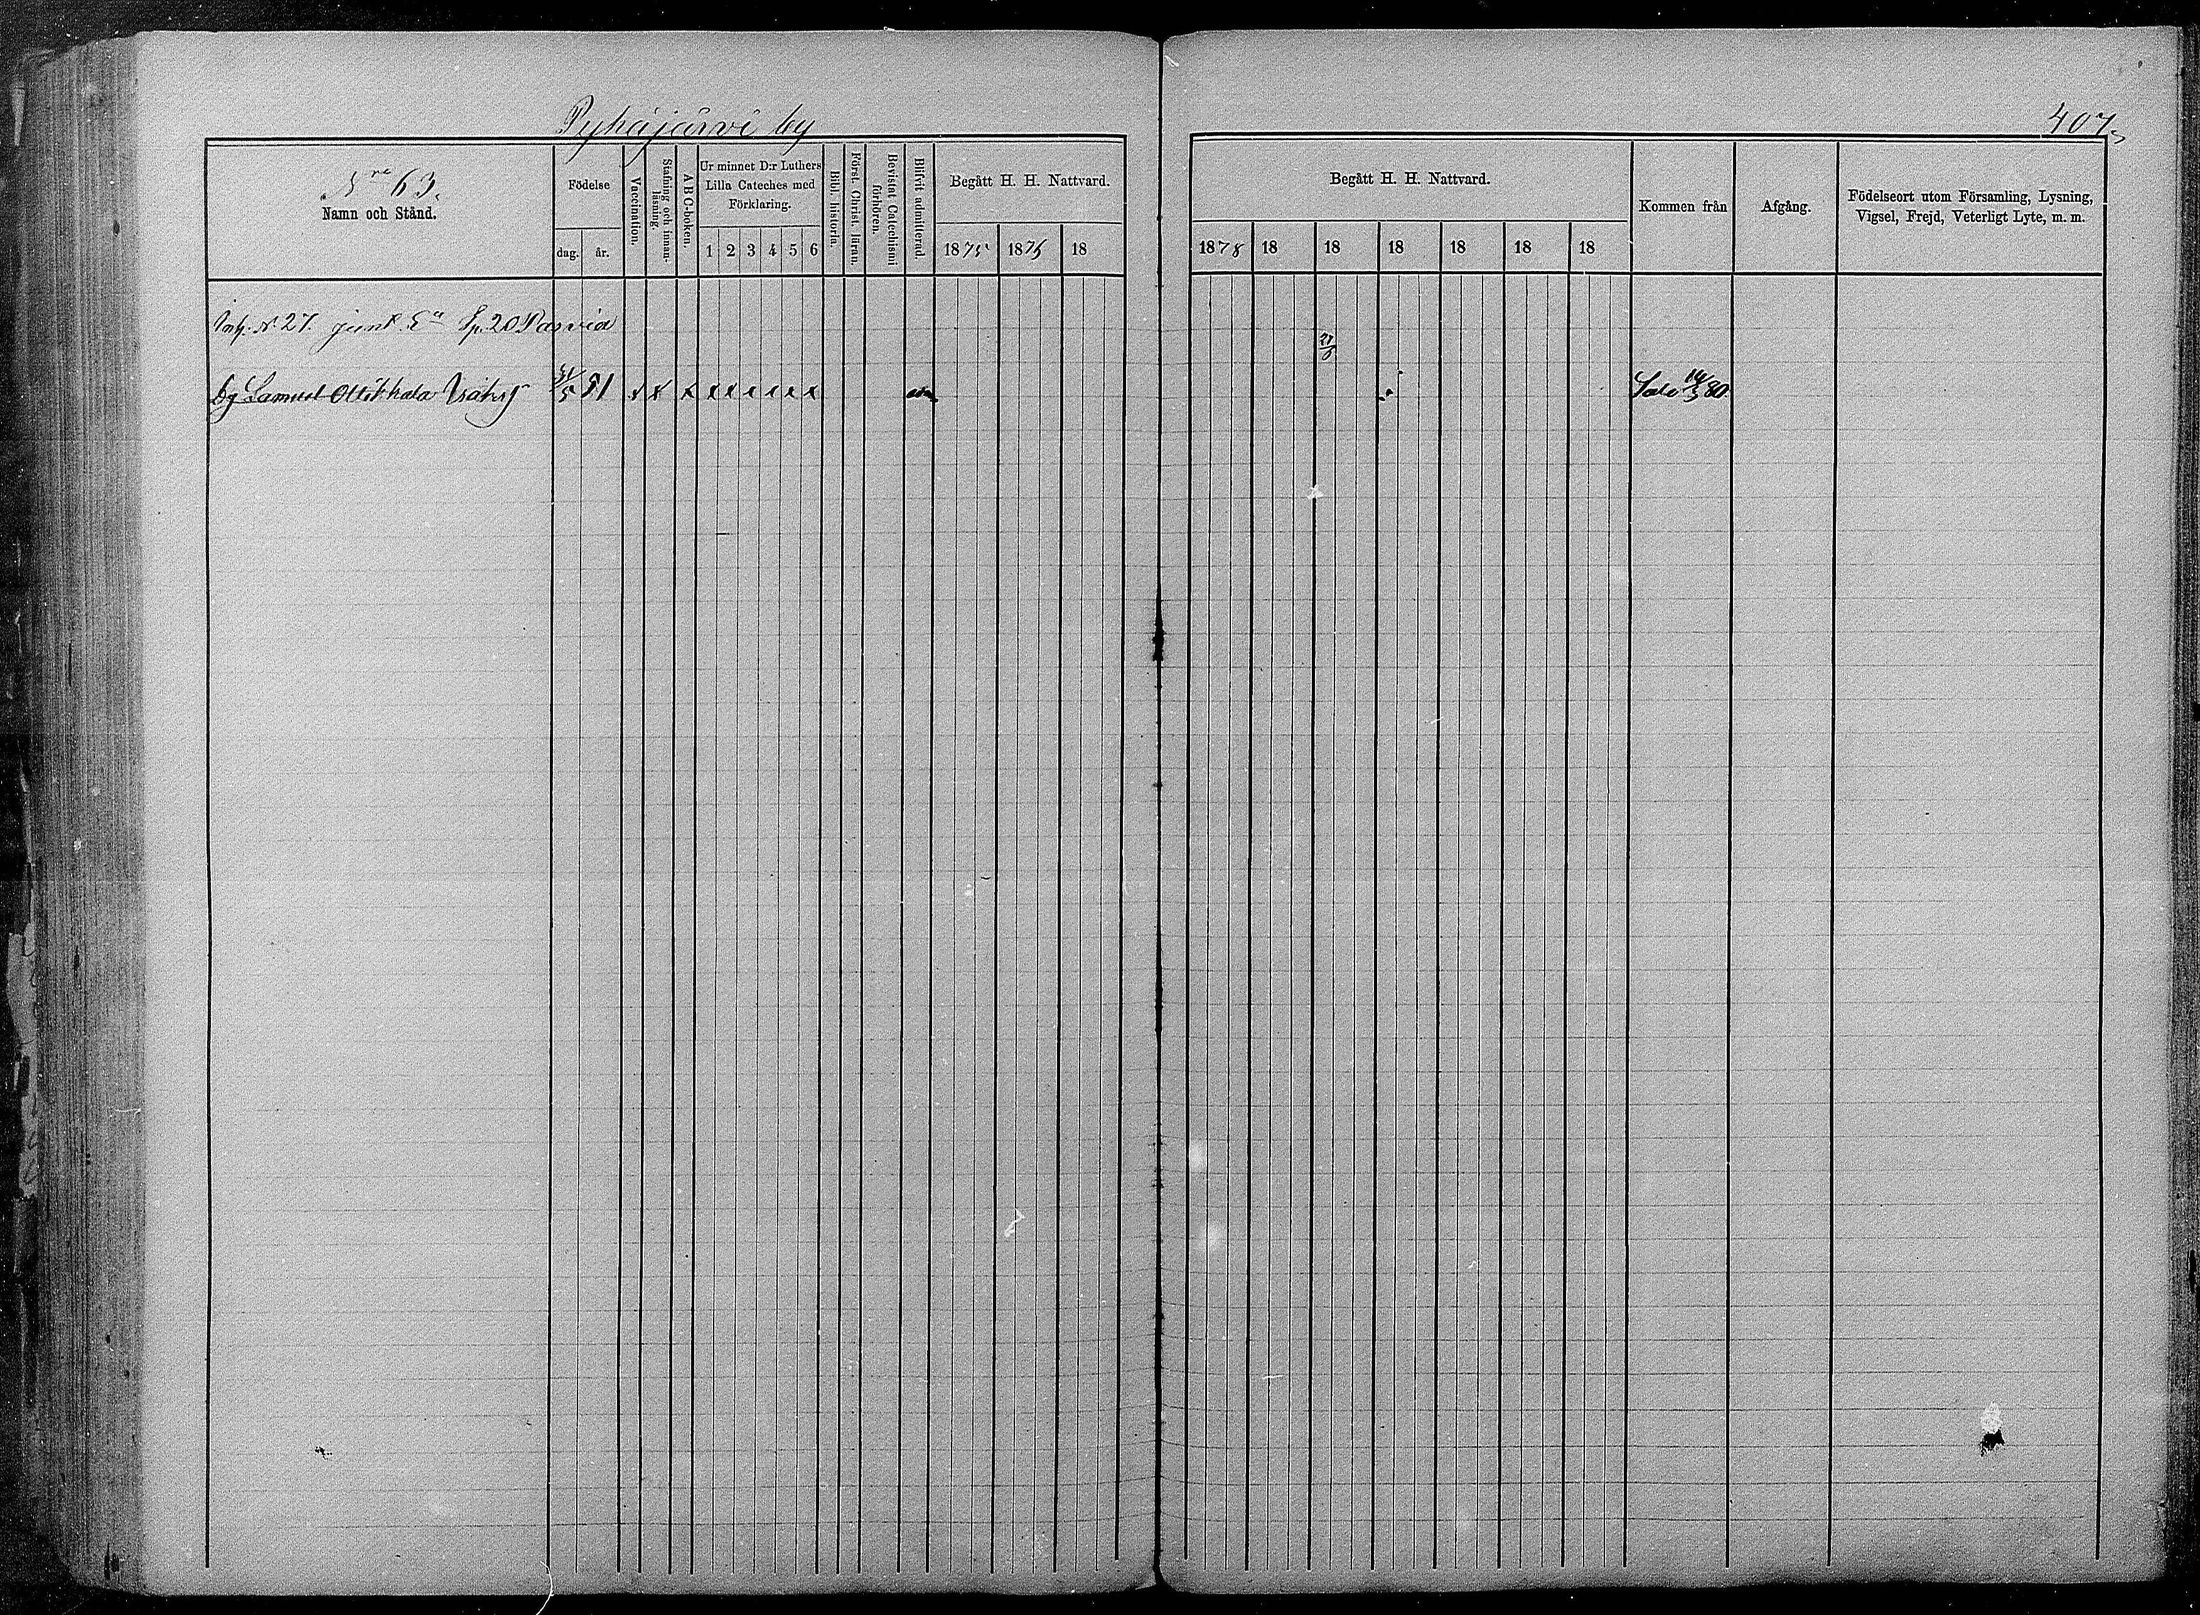 Pyhäjärvi by
407.
N:o 63.
Namn och Stånd.
Födelse
dag. år.
Vaccination.
Stafning och innanläsning.
A B C-boken.
Ur minnet D:r Luthers
Lilla Cateches med
Förklaring.
1 2 3 4 5 6
Bibl. historia.
Först. Christ. läran.
Bevistat Catechismi
förhören.
Blifvit admitterad.
Begått H. H. Nattvard.
1875 1876 18
Begått H. H. Nattvard.
1878 18 18 18 18 18 18
Kommen från
Afgång.
Födelseort utom Församling, Lysning,
Vigsel, Frejd, Veterligt Lyte, m. m.
N. 27. Sp. 20
Samuel 31/5 51 x x x x x x x x x 14/3 80.